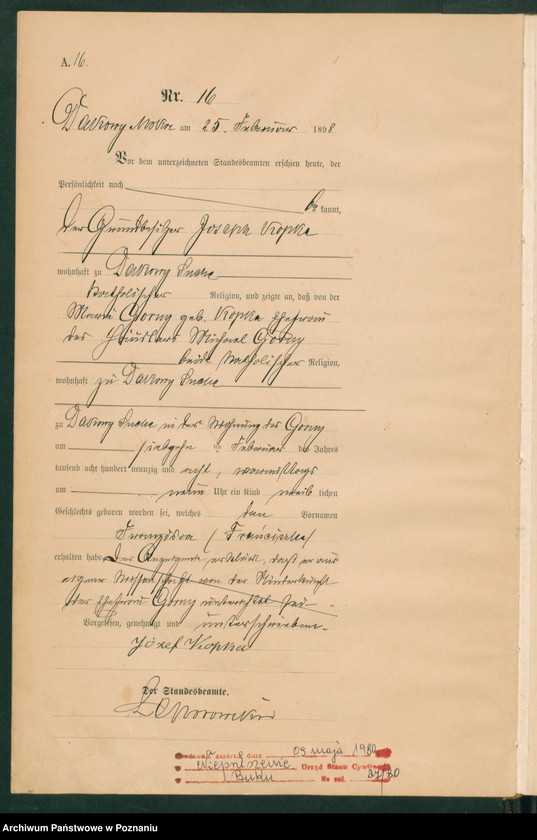 A. 16.
Nr. 16
Dakowy Mokre am 25. Februar 1898
Vor dem unterzeichneten Standesbeamten erschien heute, der
Persönlichkeit nach
be kannt,
der Grundbesitzer Joseph Kopka
wohnhaft zu Dakowy Suche
katholischer Religion, und zeigte an, daß von der
Marie Gorny geb. Kopka Ehefrau
des Häuslers Michael Gorny
beide katholischer Religion,
wohnhaft zu Dakowy Suche
zu Dakowy Suche in der Wohnung des Gorny
am siebzehn ten Februar des Jahres
tausend acht hundert neunzig und acht, vormittags
um neun Uhr ein Kind weib lichen
Geschlechts geboren worden sei, welches den Vornamen
Franziska (Franciszka)
erhalten habe. Der Anzeigende erklärt, daß er aus
eigner Wissenschaft von der Niederkunft
der Ehefrau Gorny unterrichtet sei.
Vorgelesen, genehmigt und unterschrieben.
Józef Kopka
Der Standesbeamte.
03 maja 1980
Urząd Stanu Cywilnego
Buku
37/80
Archiwum Państwowe w Poznaniu